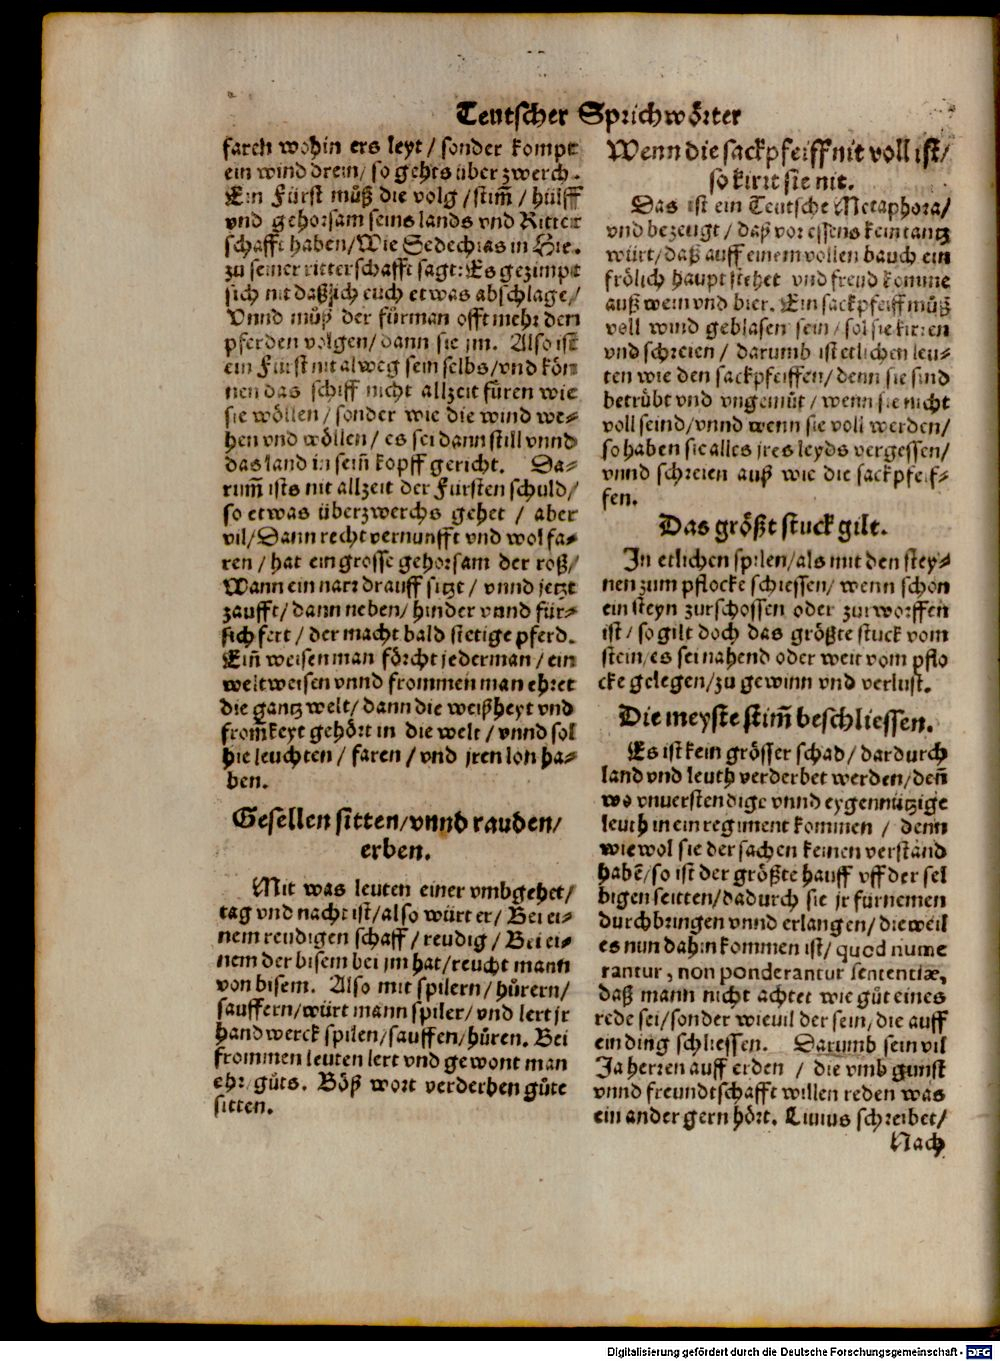 Teutscher Sprichwörter
faren wohin ers leyt / sonder kompt
ein wind drein / so gehts überzwerch.
Ein Fürst můß die volg / stim̃ / hülff
vnd gehorsam seins lands vnd Ritter
schafft haben / Wie Sedechias in Hie.
zu seiner ritterschafft sagt: Es gezimpt
sich nit daß ich euch etwas abschlage /
Vnnd můß der fůrman offt mehr den
pferden volgen / dann sie jm. Also ist
ein Fürst nit alweg sein selbs / vnd kön
nen das schiff nicht allzeit füren wie
sie wöllen / sonder wie die wind we⸗
hen vnd wöllen / es sei dann still vnnd
das land in sein̄ kopff gericht. Da⸗
rum̃ ists nit allzeit der Fürsten schuld /
so etwas überzwerchs gehet / aber
vil / Dann recht vernunfft vnd wol fa⸗
ren / hat ein grosse gehorsam der roß /
Wann ein narr drauff sitzt / vnnd jetzt
zaufft / dann neben / hinder vnnd für⸗
sich fert / der macht bald stetige pferd.
Ein̄ weisen man förcht jederman / ein
weltweisen vnnd frommen man ehret
die gantz welt / dann die weißheyt vnd
from̃keyt gehört in die welt / vnnd sol
hie leuchten / faren / vnd jren lon ha⸗
ben.
Gesellen sitten / vnnd rauden /
erben.
Mit was leuten einer vmbgehet /
tag vnd nacht ist / also würt er / Bei ei⸗
nem reudigen schaff / reudig / Bei ei⸗
nem der bisem bei jm hat / reucht mann
von bisem. Also mit spilern / hůrern /
sauffern / würt mann spiler / vnd lert jr
handwerck spilen / sauffen / hůren. Bei
frommen leuten lert vnd gewont man
ehr / gůts. Böß wort verderben gůte
sitten.
Wenn die sackpfeiff nit voll ist /
so kirrt sie nit.
Das ist ein Teutsche Metaphora /
vnd bezeugt / daß vor essens kein tantz
würt / daß auff einem vollen bauch ein
frölich haupt stehet vnd freud komme
auß wein vnd bier. Ein sackpfeiff můß
voll wind geblasen sein / sol sie kirren
vnd schreien / darumb ist etlichen leu⸗
ten wie den sackpfeiffen / denn sie sind
betrübt vnd vngemůt / wenn sie nicht
voll seind / vnnd wenn sie voll werden /
so haben sie alles jres leyds vergessen /
vnnd schreien auß wie die sackpfeif⸗
fen.
Das größt stuck gilt.
In etlichen spilen / als mit den stey⸗
nen zum pflocke schiessen / wenn schon
ein steyn zurschossen oder zurworffen
ist / so gilt doch das größte stuck vom
stein / es sei nahend oder weit vom pflo
cke gelegen / zu gewinn vnd verlust.
Die meyste stim̃ beschliessen.
Es ist kein grösser schad / dardurch
land vnd leuth verderbet werden / den̄
wo vnuerstendige vnnd eygennützige
leuth in ein regiment kommen / denn
wiewol sie der sachen keinen verstand
habē / so ist der größte hauff vff der sel
bigen seitten / dadurch sie jr fürnemen
durchbringen vnnd erlangen / dieweil
es nun dahin kommen ist / quod nume
rantur, non ponderantur sententiæ,
daß mann nicht achtet wie gůt eines
rede sei / sonder wieuil der sein / die auff
ein ding schliessen. Darumb sein vil
Ja herren auff erden / die vmb gunst
vnnd freundtschafft willen reden was
ein ander gern hört. Liuius schreibet /
Nach
Digitalisierung gefördert durch die Deutsche Forschungsgemeinschaft - DFG